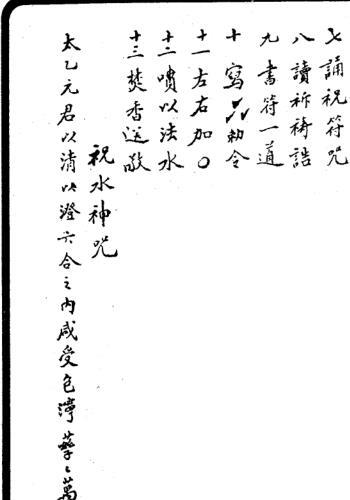 七 誦祝符咒
八 讀祈禱誥
九 書符一道
十 寫 勅令
十一 左右加〇
十二 噴以法水
十三 焚香送敬
祝水神咒
太乙元君以清以澄六合之內咸受色 萬